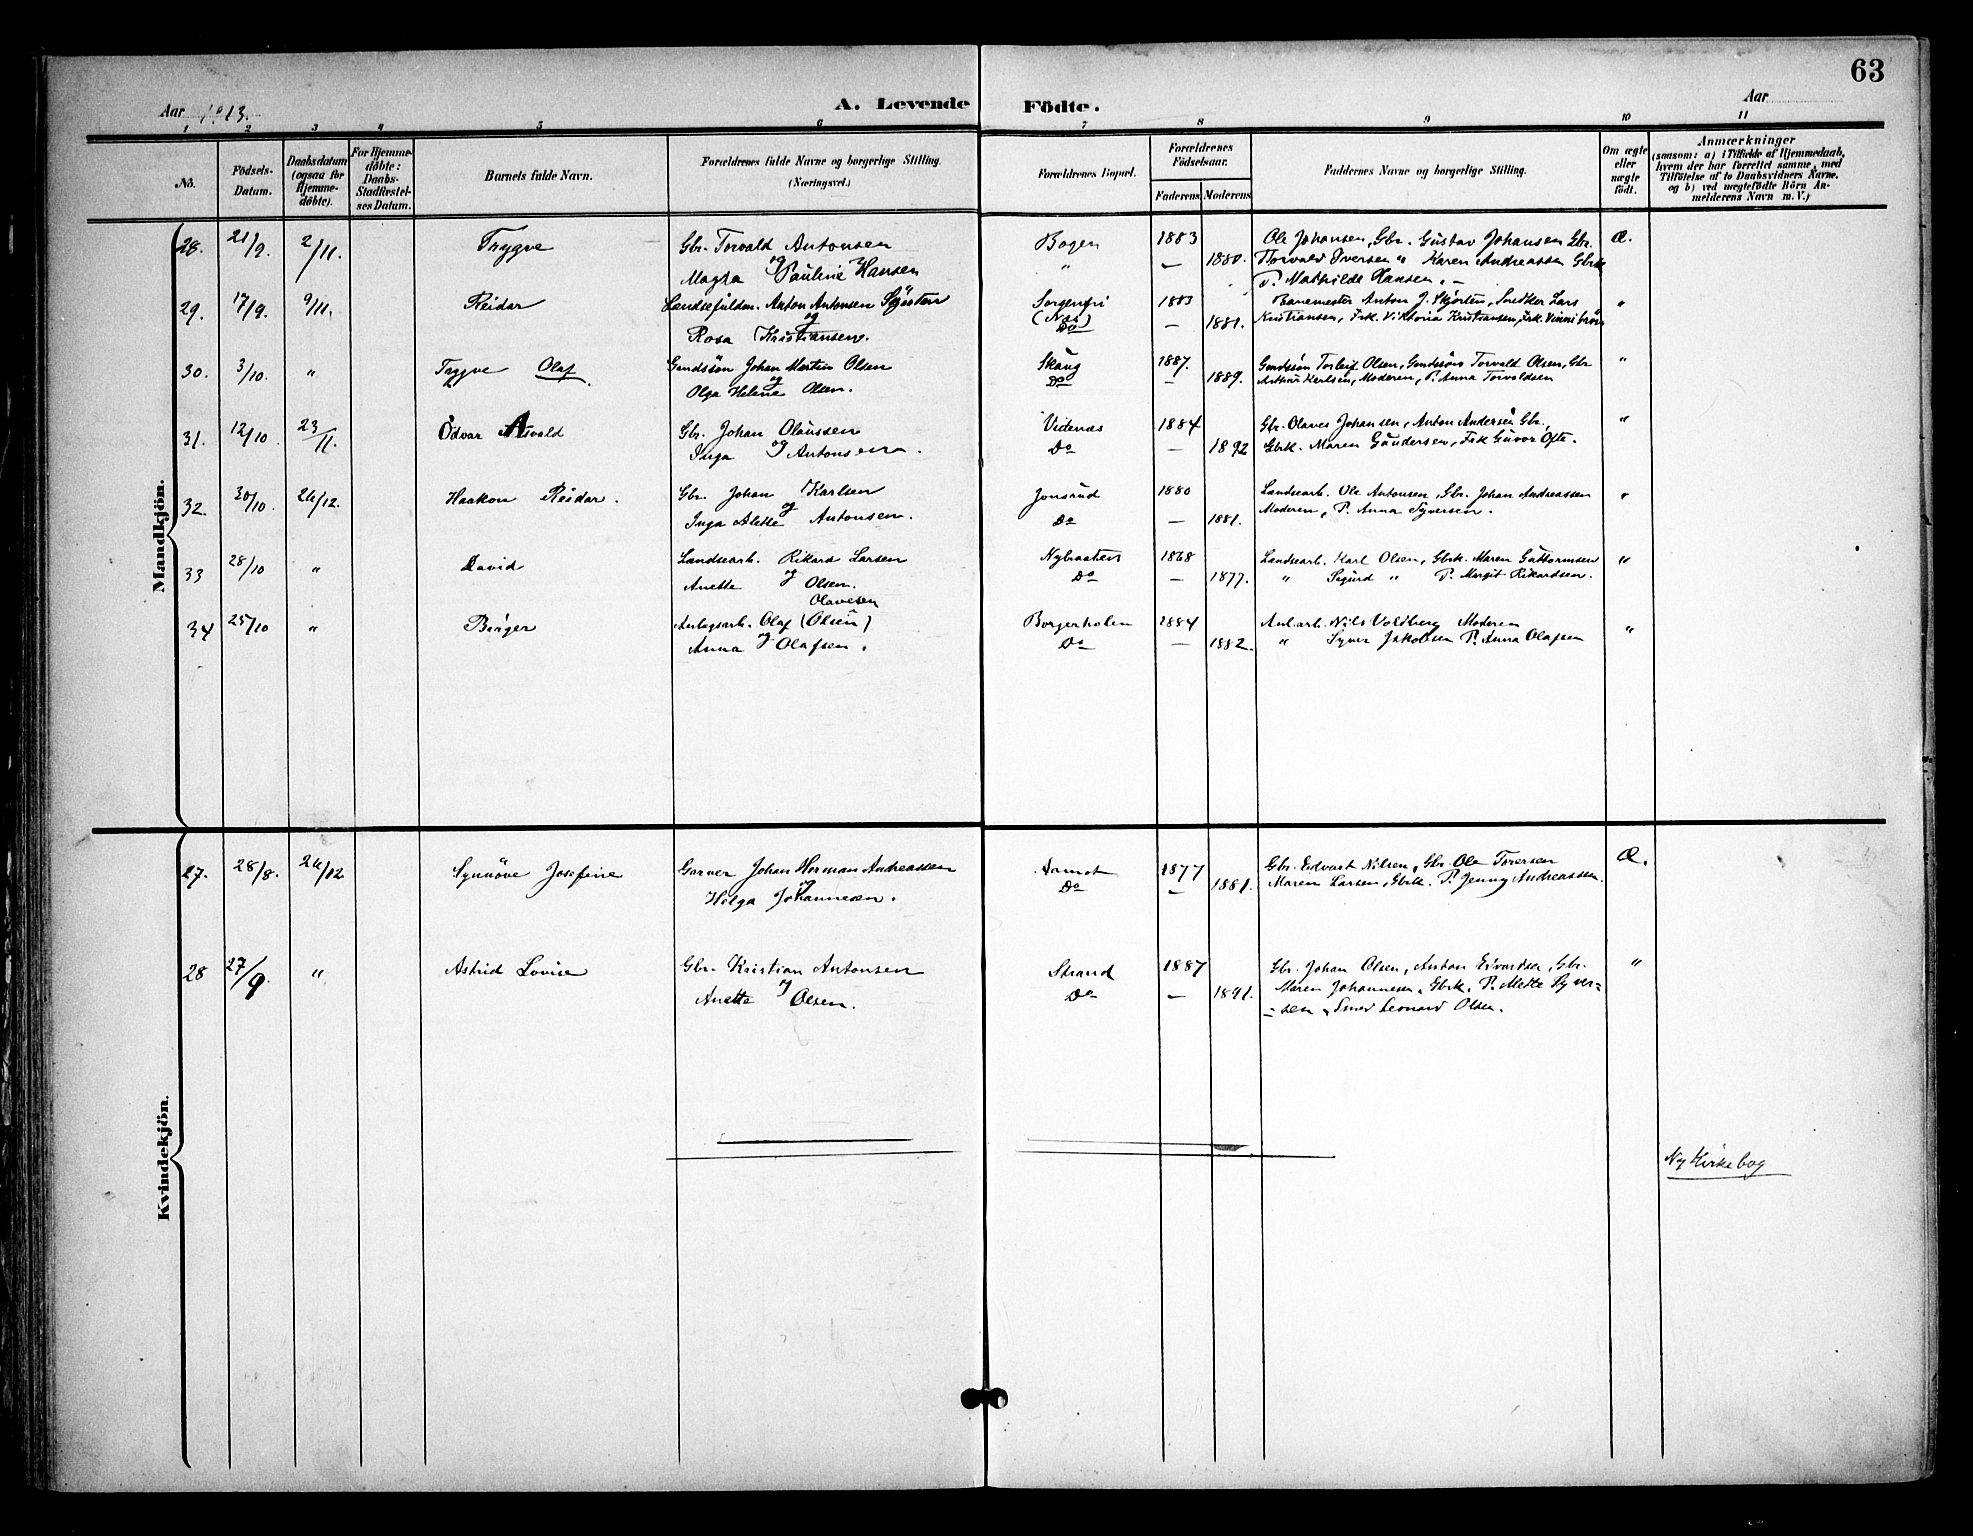 63
Aar 1913. A. Levende Födte. Aar
1 2 3 4 5 6 7 8 9 10 11
No. Födsels-Datum. Daabsdatum (ogsaa for Hjemme-döbte). For Hjemme-döbte: Daabs-Stadfæstel-ses Datum. Barnets fulde Navn. Forældrenes fulde Navne og borgerlige Stilling. (Næringsvei.) Forældrenes Bopæl. Forældrenes Födselsaar. Faderens Moderens Faddernes Navne og borgerlige Stilling. Om ægte eller uægte födt. Anmærkninger (saasom: a) i Tilfælde af Hjemmedaab, hvem der har forrettet samme, med Tilföielse af to Daabsvidners Navne, og b) ved uægtefödte Börn An-melderens Navn m. V.)
Mandkjön.
28. 21/9. 2/11. Trygve Gbr. Torvald Antonsen Bogen 1883 Ole Johansen, Gbr. Gustav Johansen Gbr. Æ.
og Magna Pauline Hansen " — 1880. Torvald Iversen " Karen Andreassen Gbrk
P. Mathilde Hansen, "
29. 17/9. 9/11. Reidar Anton Antonsen Sorgenfri 1883 Banemester Anton J. Skjorten, Lars "
og Rosa Kristiansen. (Nas) Do — 1881. Kristiansen, Frk. Viktoria Kristiansen, Frk.
30. 3/10. " Trygve Olaf. Gaardssön Johan Martin Olsen Skaug 1887. Gaardssön Torleif Olsen, Gaardssön Torvald Olsen, Gbr "
og Olga Helene Olsen. Do — 1889. Arthur Karlsen, Moderen, P. Anna Torvaldsen
31. 12/10 23/11. Odvar Asvald Gbr. Johan Olaussen Videnæs 1884 Gbr. Olaves Johansen, Anton Andersen Gbr., "
Inga og Antonsen. Do — 1892 Gbrk. Maren Gundersen, Frk Guvor Ofte.
32. 30/10. 26/12. Haakon Reidar. Gbr. Johan Karlsen Jonsrud 1880 Landsearb. Ole Antonsen, Gbr. Johan Andreassen "
Inga Alette og Antonsen. Do — 1881. Moderen, P. Anna Syversen.
33 28/10 " David Landsearb. Rikard Larsen Nybraaten 1868 Landsearb. Karl Olsen, Gbrk. Maren Guttormsen "
Anette og Olsen. Do — 1877. " Sigurd " P. Margit Rikardsen.
Olavesen
34 25/10 " Birger Anlægsarb. Olaf (Olsen) Borgerholen 1884 Anl. arb. Nils Voldberg Moderen "
Anna og Olafsen. Do — 1882. " Syver Jakobsen P. Anna Olafsen
Kvindekjön.
27. 28/8. 26/12. Synnöve Josefine Garver Johan Herman Andreassen Aamot 1877 Gbr. Edvart Nilsen, Gbr. Ole Torersen Æ.
og Helga Johannesen. Do — 1881. Maren Larsen, Gbrk. P. Jenny Andreassen.
28 27/9 " Astrid Lovise Gbr. Kristian Antonsen Strand 1887 Gbr. Johan Olsen, Anton Edvardsen, Gbr. "
Anette og Olsen. Do — 1891. Maren Johannesen, Gbrk. P. Mette Syver-
-sen, Smed Leonard Olsen.
Ny Kirkebog